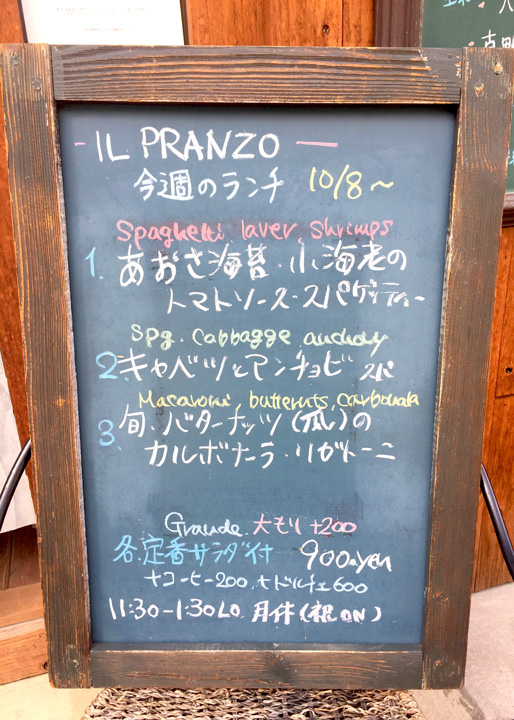 - IL PRANZO —
今週のランチ 10/8～
Spaghetti laver, shrimps
1. あおさ海苔・小海老の
トマトソース・スパゲッティー
Spg. Cabbagge anchovy
2. キャベツとアンチョビ スパ
Macaroni, butternuts, carbonala
3. 旬・バターナッツ(瓜)の
カルボナーラ・リガトーニ
Grande 大モリ +200
各.定番サラダ付 900.yen
+コーヒー200, +ドルチェ600
11:30-1:30LO. 月休(祝ON)